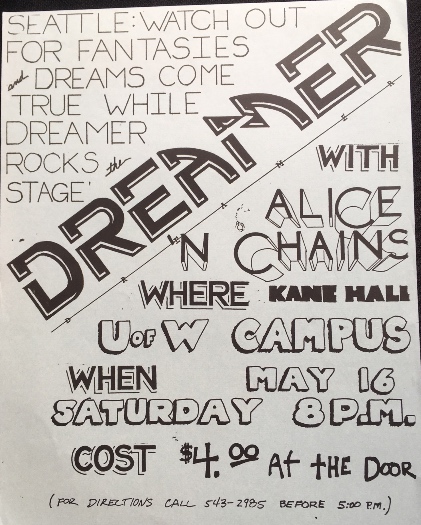 SEATTLE: WATCH OUT
FOR FANTASIES
and DREAMS COME
TRUE WHILE
DREAMER
ROCKS the
STAGE'
DREAMER
DREAMER
WITH
ALICE
'N CHAINS
WHERE KANE HALL
U OF W CAMPUS
WHEN MAY 16
SATURDAY 8 P.M.
COST $4.00 At tHE DOOR
(FOR DIRECTIONS CALL 543-2985 BEFORE 5:00 P.M.)